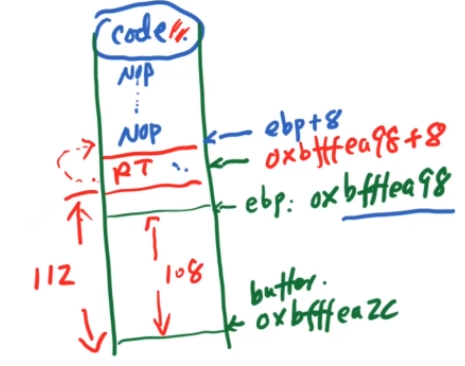 code
NOP
NOP
ebp+8
RT
0xbfffea98+8
ebp: 0xbfffea98
112
108
buffer.
0xbfffea2c